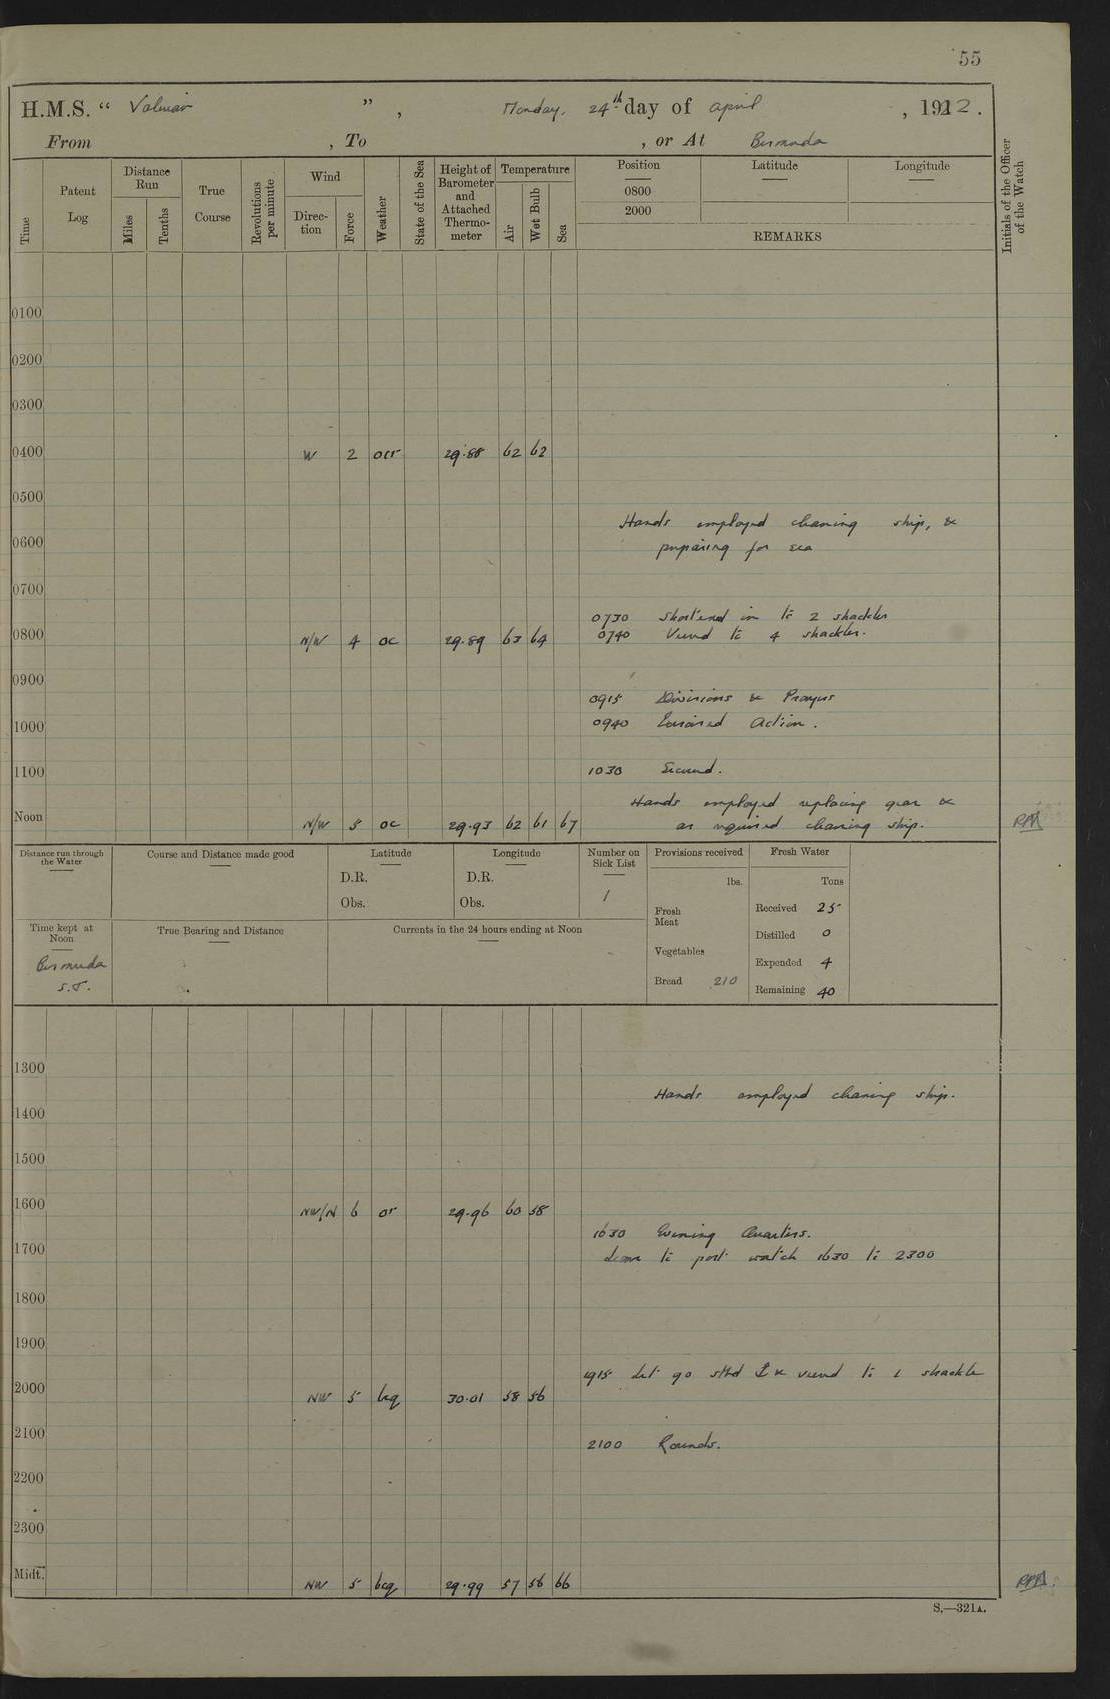 55
H.M.S. “ Valerian ”, Monday, 24th day of April, 1922.
From , To , or At Bermuda
Time
Patent Log
Distance Run
Miles
Tenths
True Course
Revolutions per minute
Wind
Direction
Force
Weather
State of the Sea
Height of Barometer and Attached Thermometer
Temperature
Air
Wet Bulb
Sea
Position
0800
2000
Latitude
Longitude
REMARKS
Initials of the Officer of the Watch
0100
0200
0300
0400 W 2 ocr 29.88 62 62
0500
Hands employed cleaning ship, &
0600 preparing for sea
0700
0730 Shortened in to 2 shackles
0740 Veered to 4 shackles.
0800 N/W 4 oc 29.89 63 64
0900
0915 Divisions & Prayers
0940 Exercised Action.
1000
1030 Secured.
1100
Hands employed replacing gear &
as required cleaning ship.
Noon N/W 5 oc 29.93 62 61 67
Distance run through the Water
Course and Distance made good
Latitude
D.R.
Obs.
Longitude
D.R.
Obs.
Number on Sick List
1
Provisions received
lbs.
Fresh Meat
Vegetables
Bread 210
Fresh Water
Tons
Received 25
Distilled 0
Expended 4
Remaining 40
Time kept at Noon
Bermuda
S.T.
True Bearing and Distance
Currents in the 24 hours ending at Noon
1300
Hands employed cleaning ship.
1400
1500
1600 NW/N 6 or 29.96 60 58
1630 Evening Quarters.
Leave to port watch 1630 to 2300
1700
1800
1900
1915 Let go stbd ⚓ & veered to 1 shackle
2000 NW 5 bcq 30.01 58 56
2100
2100 Rounds.
2200
2300
Midt. NW 5 bcq 29.99 57 56 66
S.—321A.